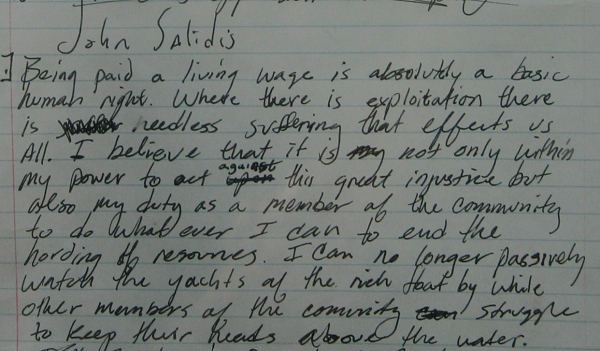 John Salidis
Being paid a living wage is absolutly a basic
human right. Where there is exploitation there
is needless suffering that effects us
All. I believe that it is not only within
my power to act against this great injustice but
also my duty as a member of the community
to do what ever I can to end the
hording of resources. I can no longer passively
watch the yachts of the rich float by while
other members of the comunity struggle
to keep their heads above the water.